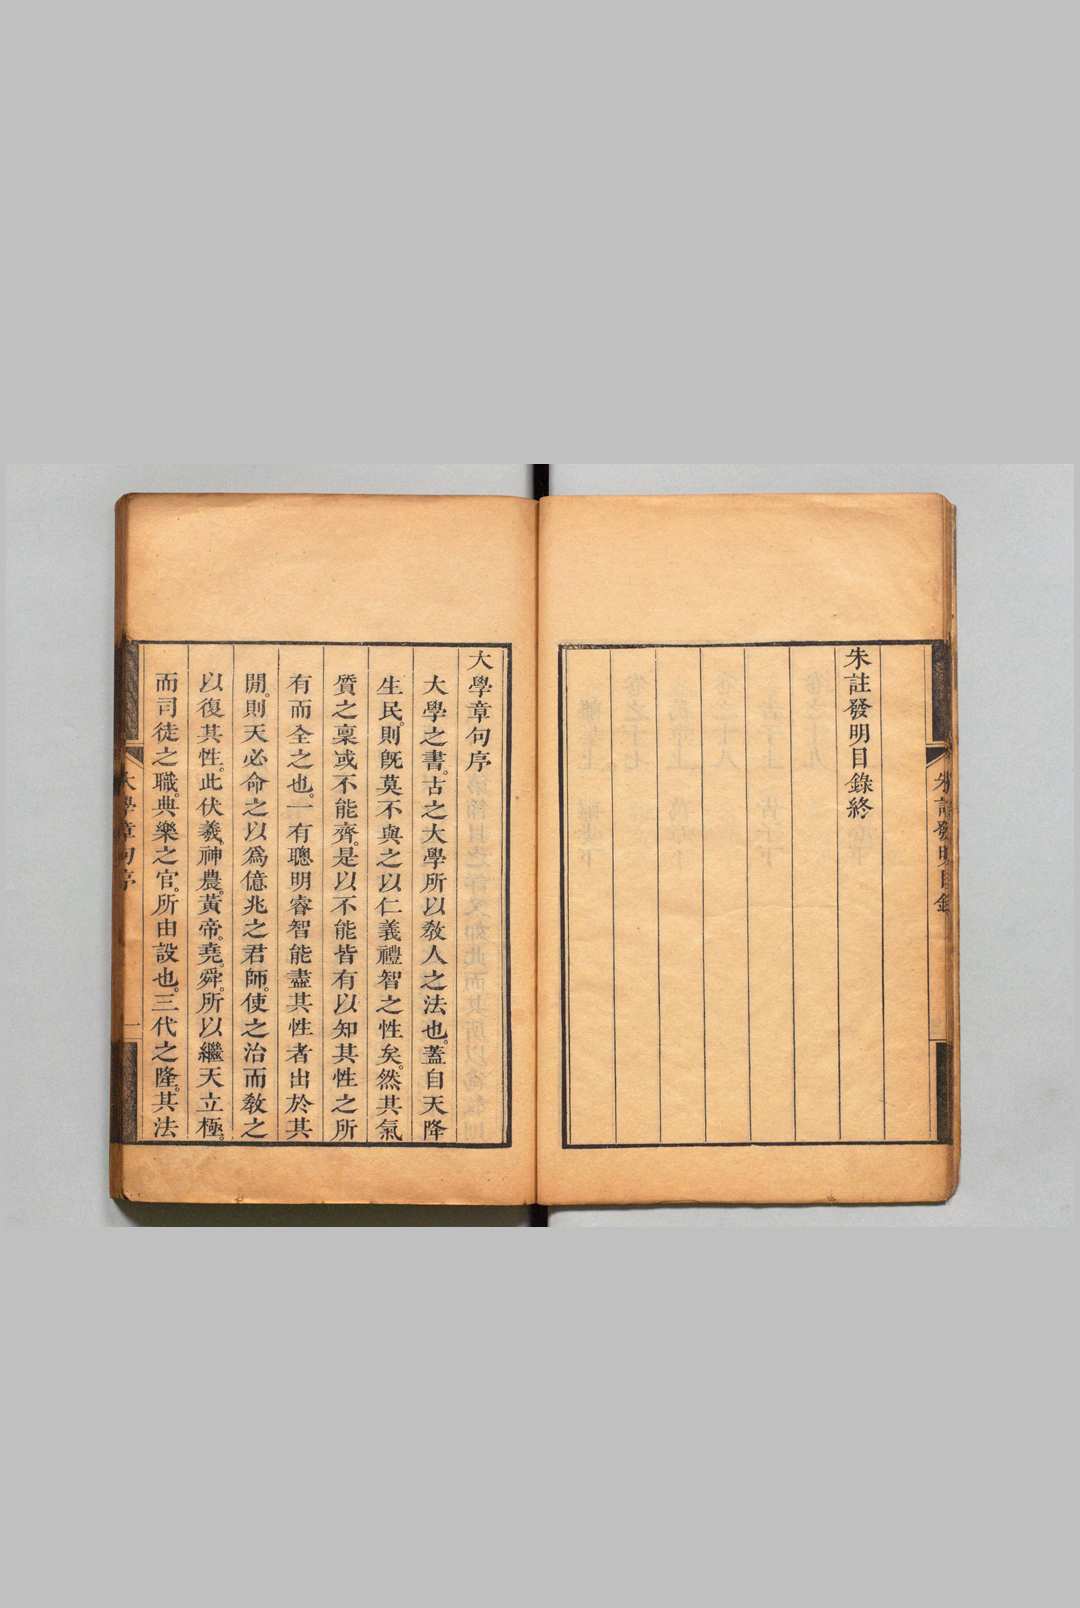 朱註發明目錄終
朱註發明目錄
大學章句序
大學之書。古之大學所以敎人之法也。蓋自天降
生民。則旣莫不與之以仁義禮智之性矣。然其氣
質之稟或不能齊。是以不能皆有以知其性之所
有而全之也。一有聰明睿智能盡其性者出於其
閒。則天必命之以爲億兆之君師。使之治而敎之
以復其性。此伏羲。神農。黃帝。堯。舜。所以繼天立極。
而司徒之職。典樂之官。所由設也。三代之隆。其法
大學章句序
一